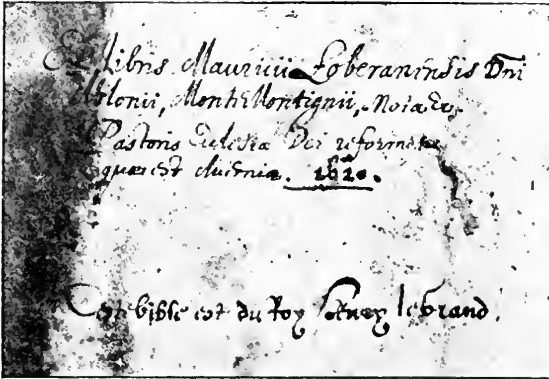 Ex Libris Mauricii Loberanensis Dni
Montis Montignii,
Pastoris Eclesiæ Dei reformatæ
quæ est 1620.
bible est du Roy Henry le grand.